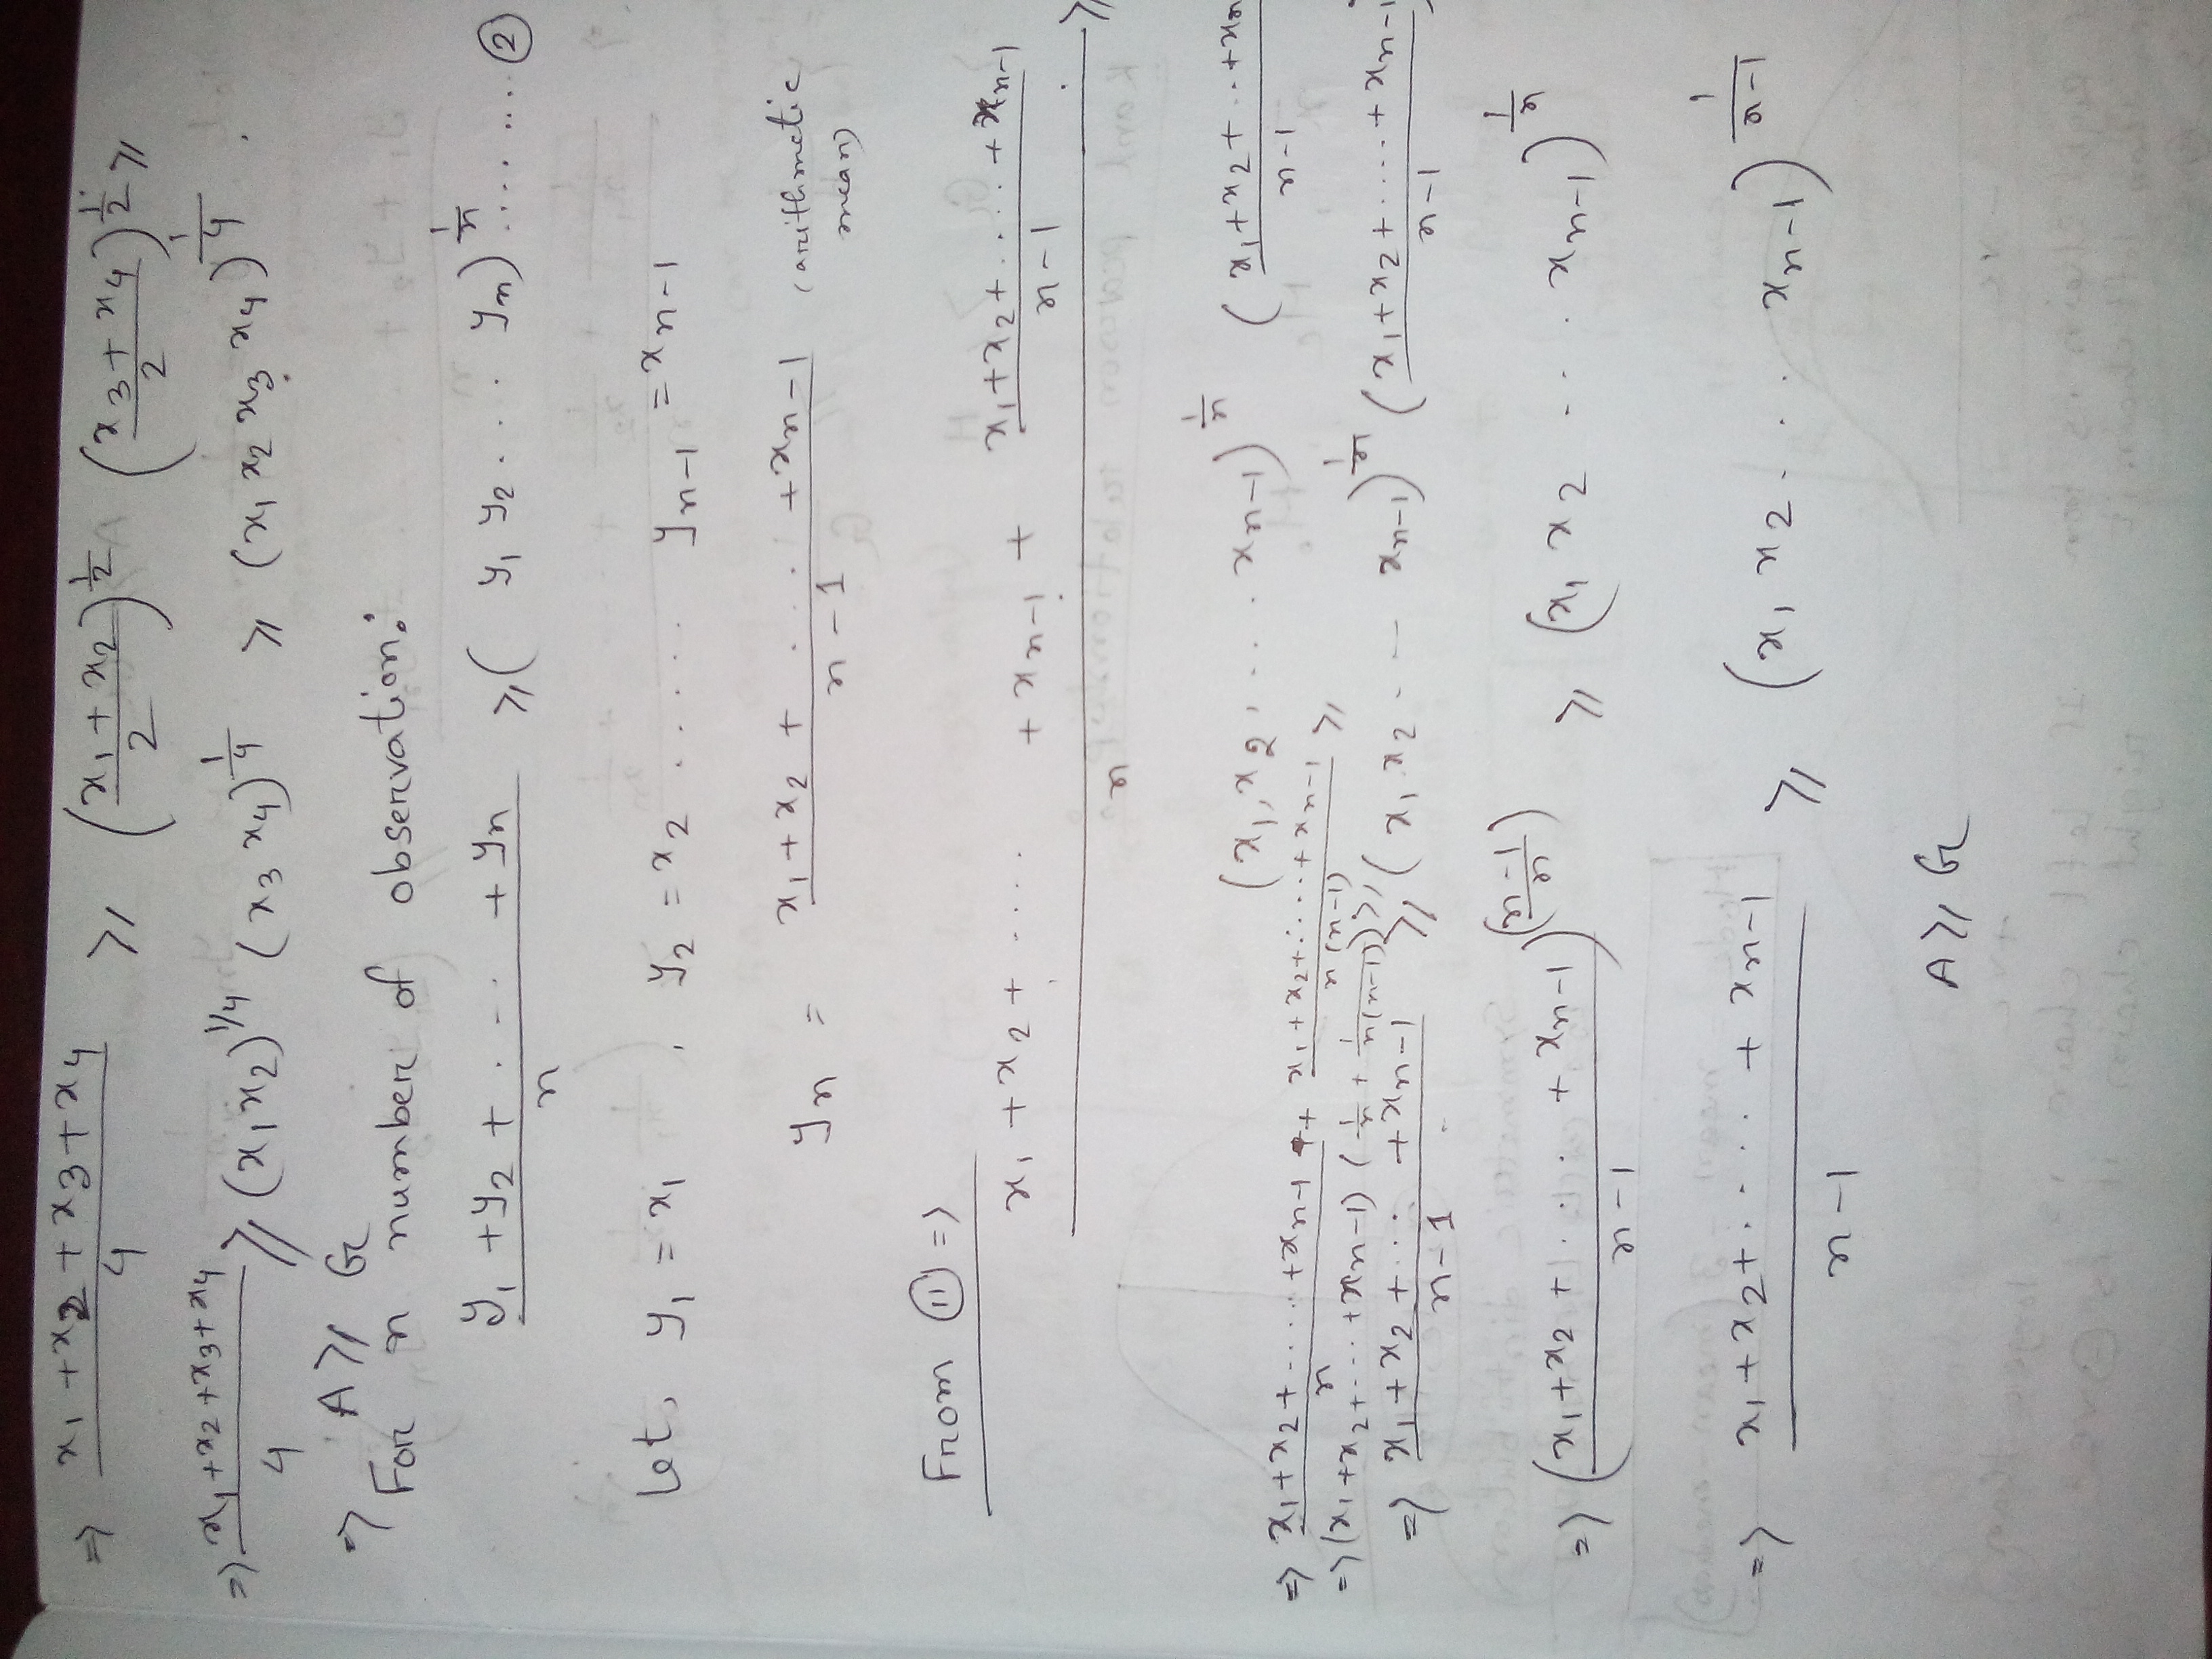 => (x₁+x₂+x₃+x₄)/4 ≥ ((x₁+x₂)/2)^(1/2) ((x₃+x₄)/2)^(1/2) ≥
=> (x₁+x₂+x₃+x₄)/4 ≥ (x₁x₂)^(1/4) (x₃x₄)^(1/4) ≥ (x₁x₂x₃x₄)^(1/4).
=> A ≥ G
For n number of observation:
(y₁+y₂+.....+yₙ)/n ≥ (y₁y₂.... yₙ)^(1/n) ........②
Let, y₁ = x₁, y₂ = x₂ ..... yₙ₋₁ = xₙ₋₁
yₙ = (x₁+x₂+....+xₙ₋₁)/(n-1), (arithmatic mean)
From ⑪ =>
(x₁+x₂+.....+xₙ₋₁+(x₁+x₂+....+xₙ₋₁)/(n-1))/n ≥
(x₁,x₂,... xₙ₋₁)^(1/n) ((x₁+x₂+..+xₙ₋
=> (x₁+x₂+.....+xₙ₋₁)/n + (x₁+x₂+.....+xₙ₋₁)/(n(n-1)) ≥
=> (x₁+x₂+....+xₙ₋₁) (1/n + 1/(n(n-1))) ≥
=> (x₁+x₂+....+xₙ₋₁)/(n-1) ≥ (x₁x₂... xₙ₋₁)^(1/n) ((x₁+x₂+....+xₙ₋₁)/(n-1)
=> ((x₁+x₂+...+xₙ₋₁)/(n-1))^((n-1)/n) ≥ (x₁x₂... xₙ₋₁)^(1/n)
=> (x₁+x₂+....+xₙ₋₁)/(n-1) ≥ (x₁x₂... xₙ₋₁)^(1/(n-1))
A ≥ G